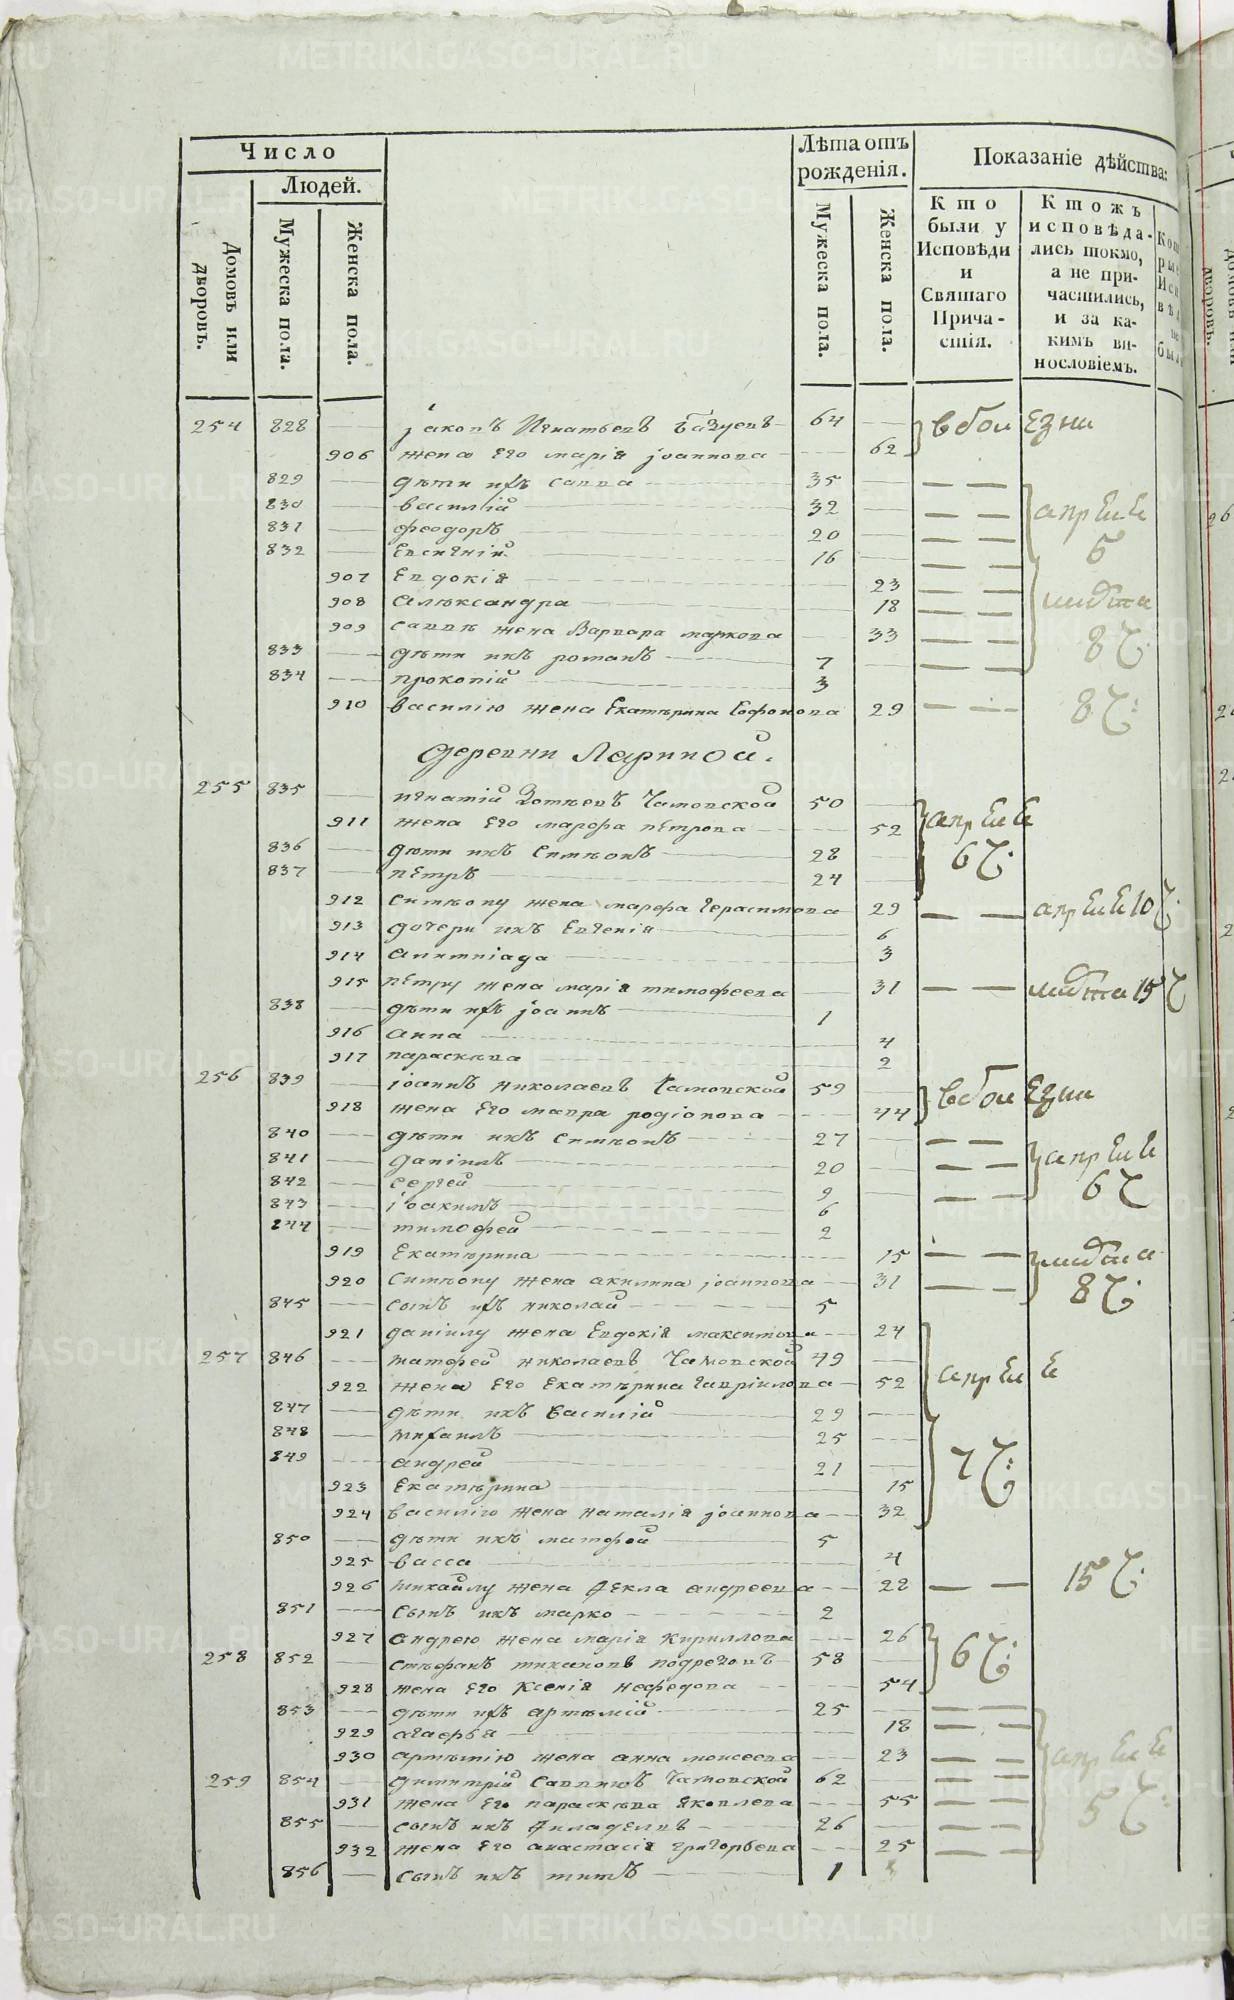 Число
Людей.
Домовъ или дворовъ.
Мужеска пола.
Женска пола.
Лѣта отъ рожденія.
Мужеска пола.
Женска пола.
Показаніе дѣйства:
Кто были у Исповѣди и Святаго Прича-стія.
Ктожъ исповѣда-лись токмо, а не при-частились, и за ка-кимъ ви-нословіемъ.
254 828 Іаковъ Игнатьевъ 64 в бол езни
906 жена Его марія Іоаннова 62
829 дѣти ихъ савва 35
830 василій 32
831 феодоръ 20
832 Евгеній 16
907 Евдокія 23
908 Александра 18
909 саввѣ жена Варвара маркова 33
833 дѣти ихъ романъ 7
834 прокопій 3
910 василію жена Екатѣрина 29
деревни Лариной.
255 835 игнатій Зотѣевъ Чамовской 50
911 жена Его марфа пЕтрова 52
836 дѣти ихъ Симѣонъ 28
837 пЕтръ 24
912 Симѣону жена марфа герасимова 29
913 дочери ихъ Евгенія 6
914 3
915 пЕтру жена марія тимофеева 31
838 дѣти ихъ Іоаннъ 1
916 анна 4
917 параскѣва 2
256 839 Іоаннъ николаевъ Чамовской 59 в бол Езни
918 жена Его мавра родіонова 44
840 дѣти ихъ Симѣонъ 27
841 даніилъ 20
842 сергей 9
843 Іоакимъ 6
844 тимофей 2
919 Екатѣрина 15
920 Симѣону жена акилина Іоаннова 31
845 сынъ ихъ николай 5
921 даніилу жена Евдокія максимова 24
257 846 матфей николаевъ Чамовской 49
922 жена Его Екатѣрина гавріилова 52
847 дѣти ихъ василій 29
848 михаилъ 25
849 андрей 21
923 Екатѣрина 15
924 василію жена наталія Іоаннова 32
850 дѣти ихъ матфей 5
925 васса 4
926 михайлу жена Ѳекла андреева 22
851 сынъ ихъ марко 2
927 андрею жена марія Кириллова 26
258 852 стѣфанъ 58
928 жена Его Ксенія нефедова 54
853 дѣти ихъ артѣмій 25
929 агафья 18
930 артѣмію жена анна моисеева 23
259 854 димитрій Саввинъ Чамовской 62
931 жена Его параскѣва Яковлева 55
855 сынъ ихъ 26
932 жена Его анастасія григорьева 25
856 сынъ ихъ титъ 1
METRIKI.GASO-URAL.RU